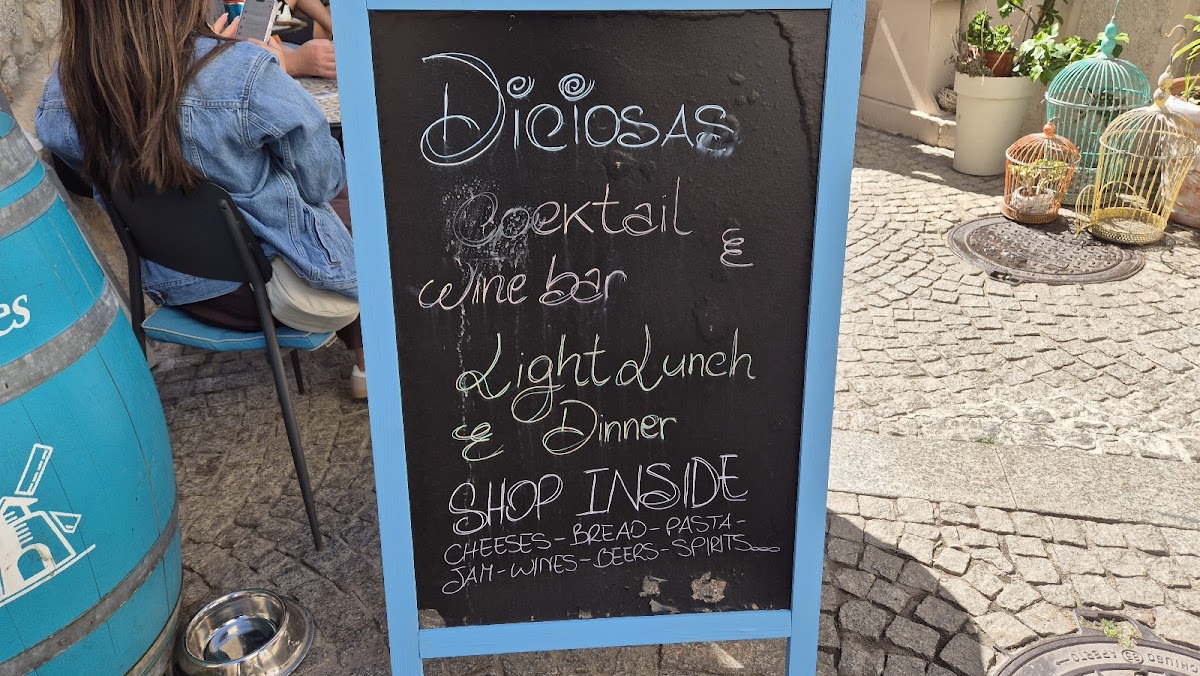 Diciosas
Cocktail
&
wine bar
Light Lunch
& Dinner
SHOP INSIDE
CHEESES - BREAD - PASTA -
JAM - WINES - BEERS - SPIRITS....
es
CHIUSO APERTO